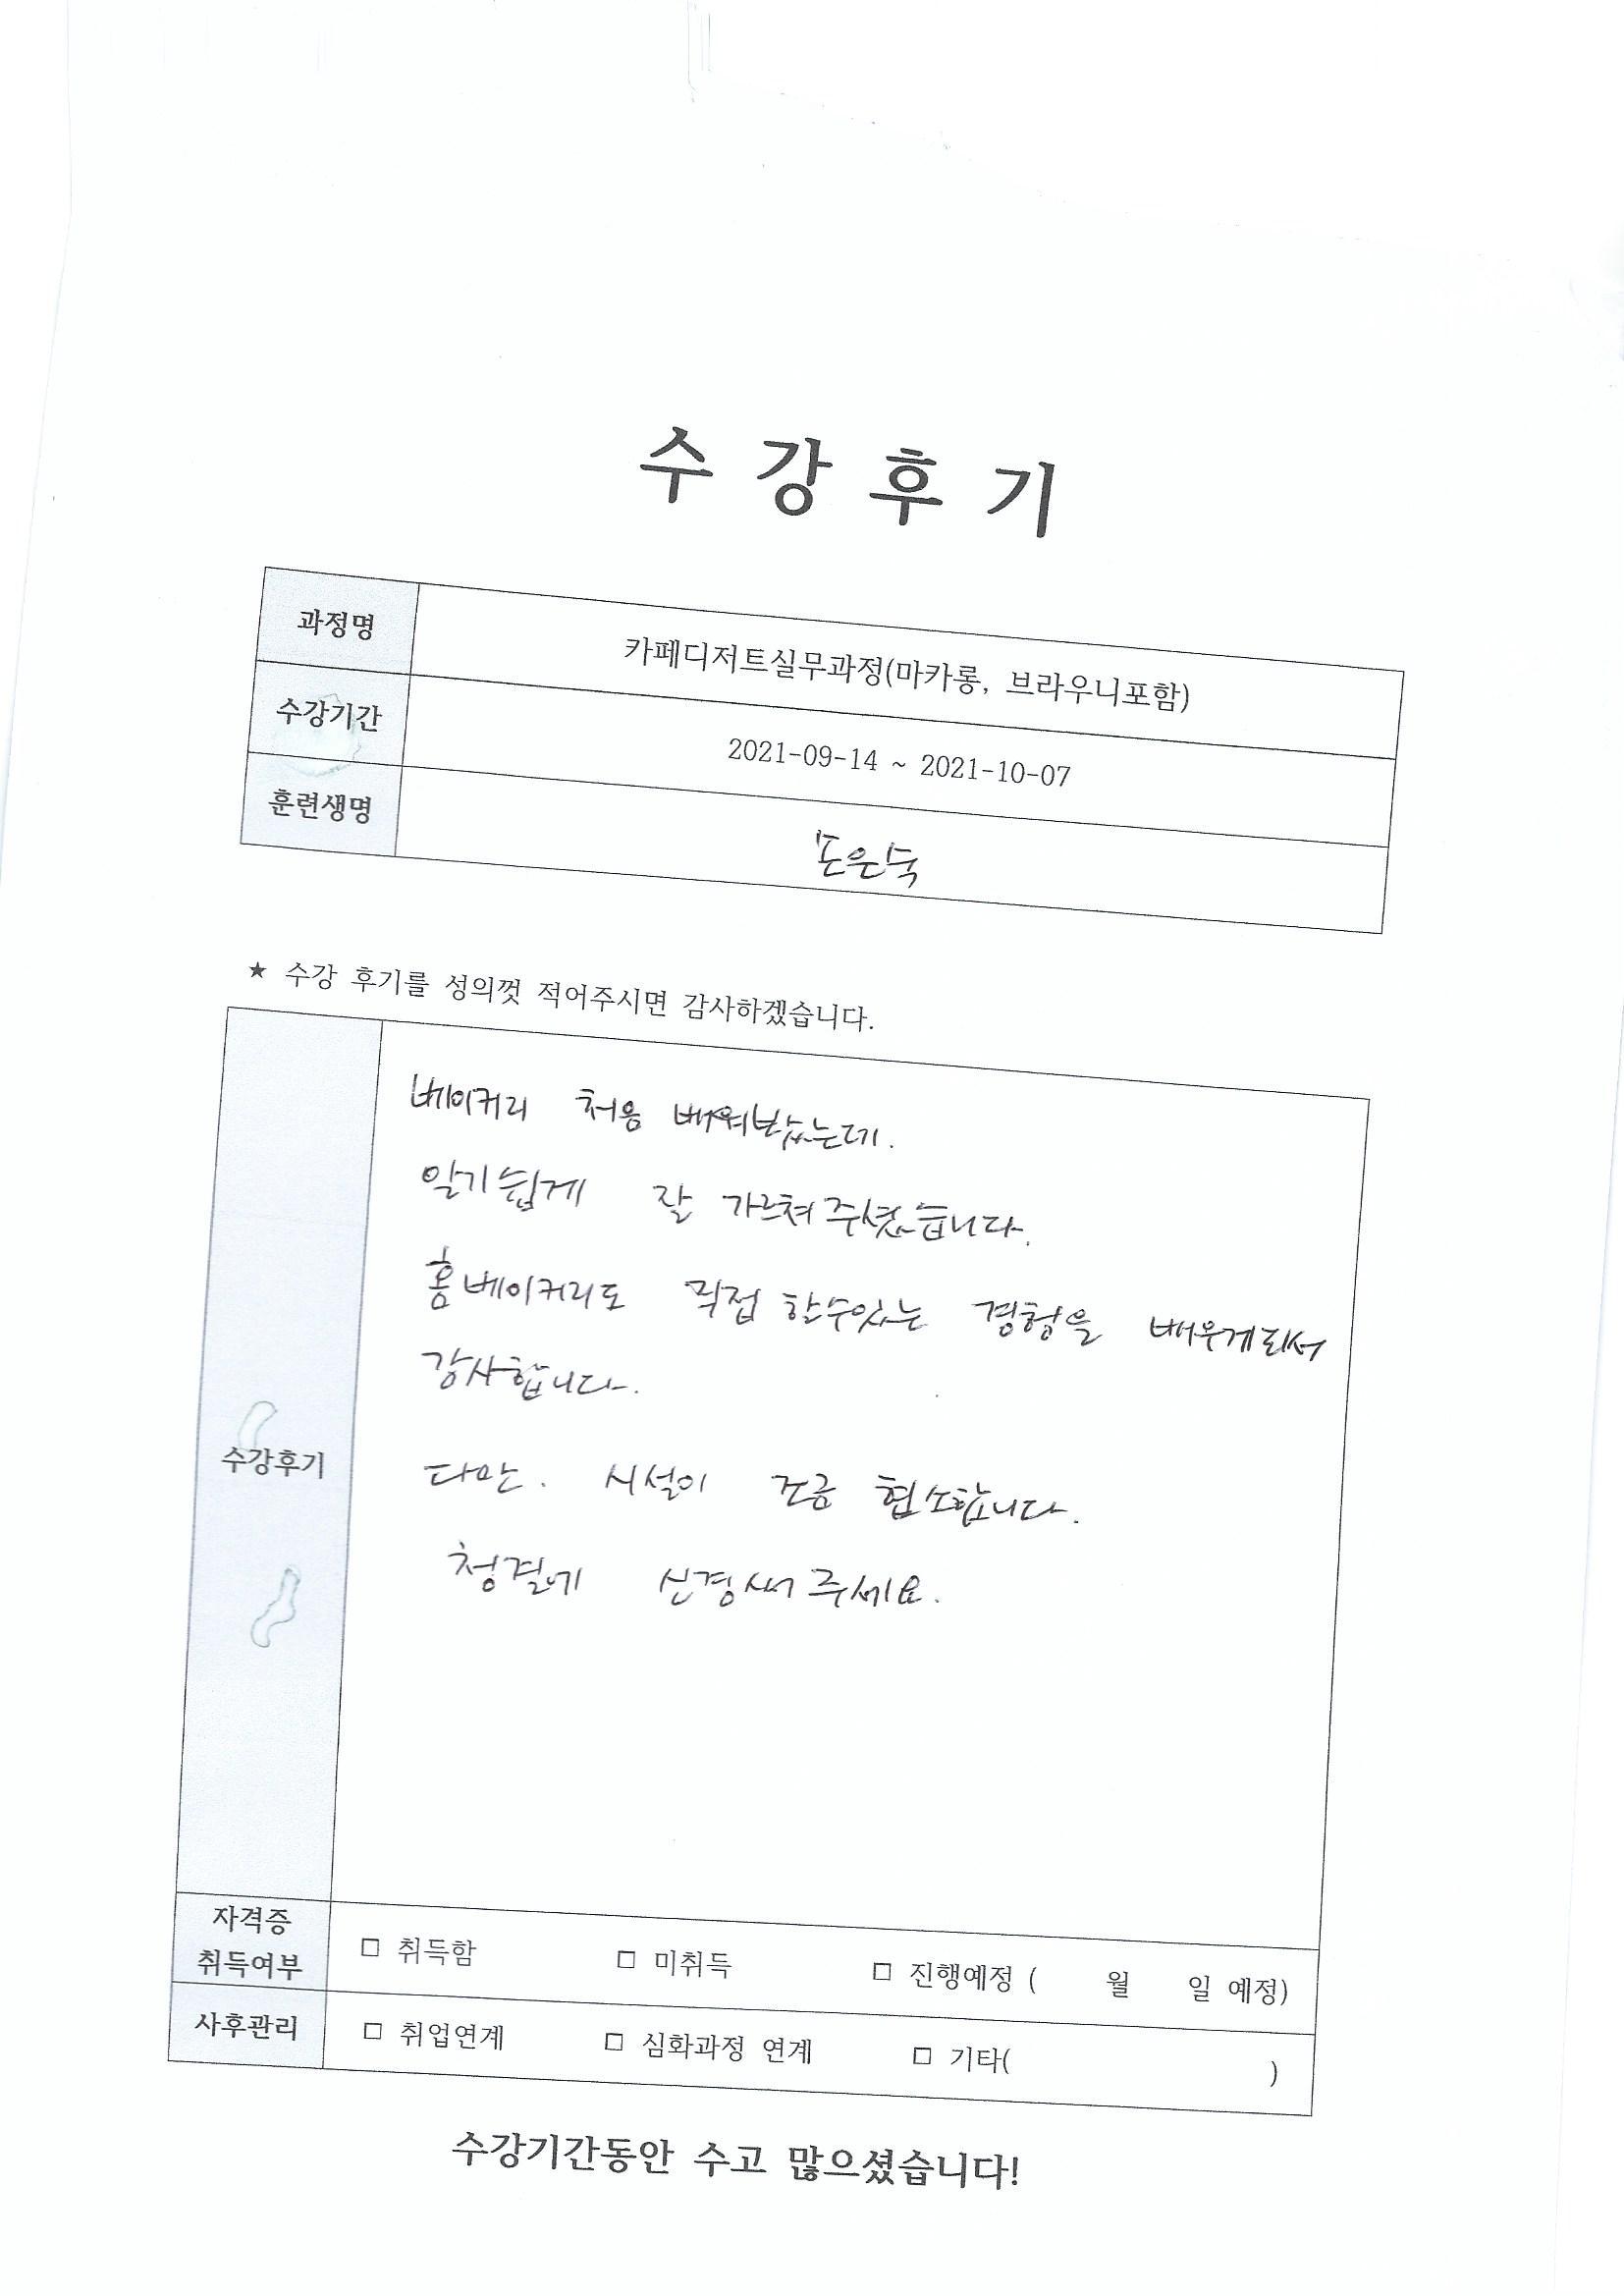 수 강 후 기
과정명 카페디저트실무과정(마카롱, 브라우니포함)
수강기간 2021-09-14 ~ 2021-10-07
훈련생명 은숙
★ 수강 후기를 성의껏 적어주시면 감사하겠습니다.
베이커리 처음 배워봤는데.
알기쉽게 잘 가르쳐주셨습니다.
홈베이커리도 직접 할수있는 경험을 배우게되서
감사합니다.
수강후기
다만. 시설이 조금 협소합니다.
청결에 신경써주세요.
자격증
취득여부 □ 취득함 □ 미취득 □ 진행예정 ( 월 일 예정)
사후관리 □ 취업연계 □ 심화과정 연계 □ 기타( )
수강기간동안 수고 많으셨습니다!